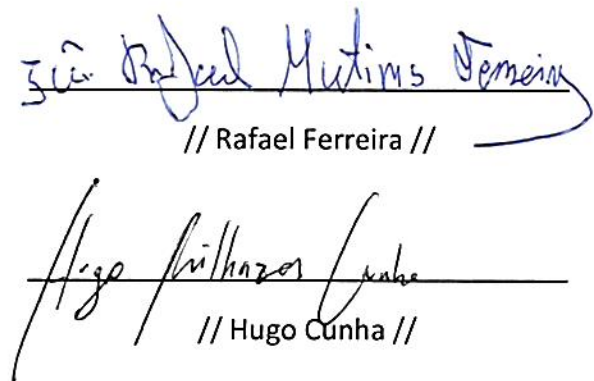 Rafael Martins Ferreira
// Rafael Ferreira //
Hugo Cunha
// Hugo Cunha //